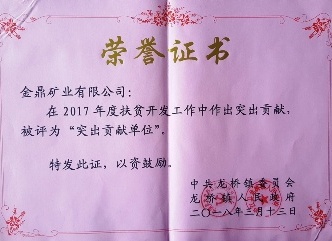 荣誉证书
金鼎矿业有限公司:
在2017年度扶贫开发工作中作出突出贡献,
被评为“突出贡献单位”。
特发此证,以资鼓励。
中共龙桥镇委员会
龙桥镇人民政府
二〇一八年三月十三日